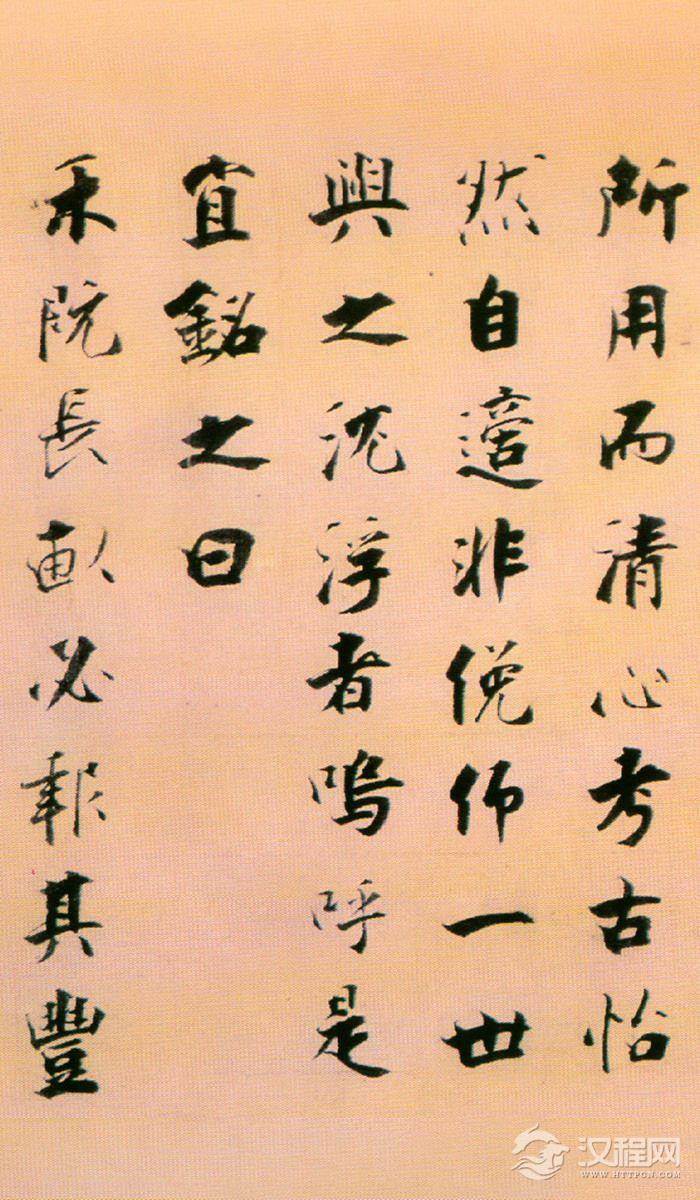 所用而清心考古怡
然自適非俛仰一世
與之沈浮者嗚呼是
宜銘之曰
禾既長畝必報其豐
汉程网
WWW.HTTPCN.COM